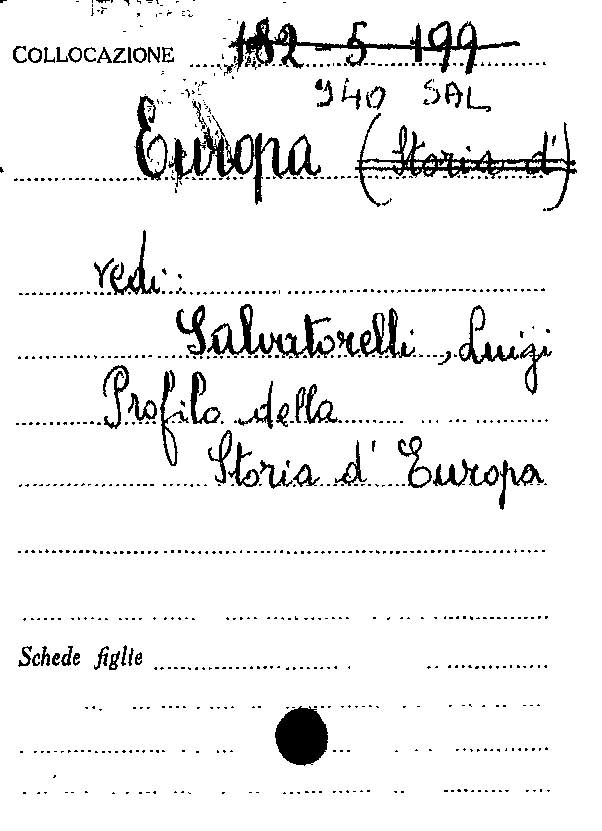 COLLOCAZIONE 182-5 199
940 SAL
Europa (Storia d')
vedi:
Salvatorelli, Luigi
Profilo della
Storia d' Europa
Schede figlie